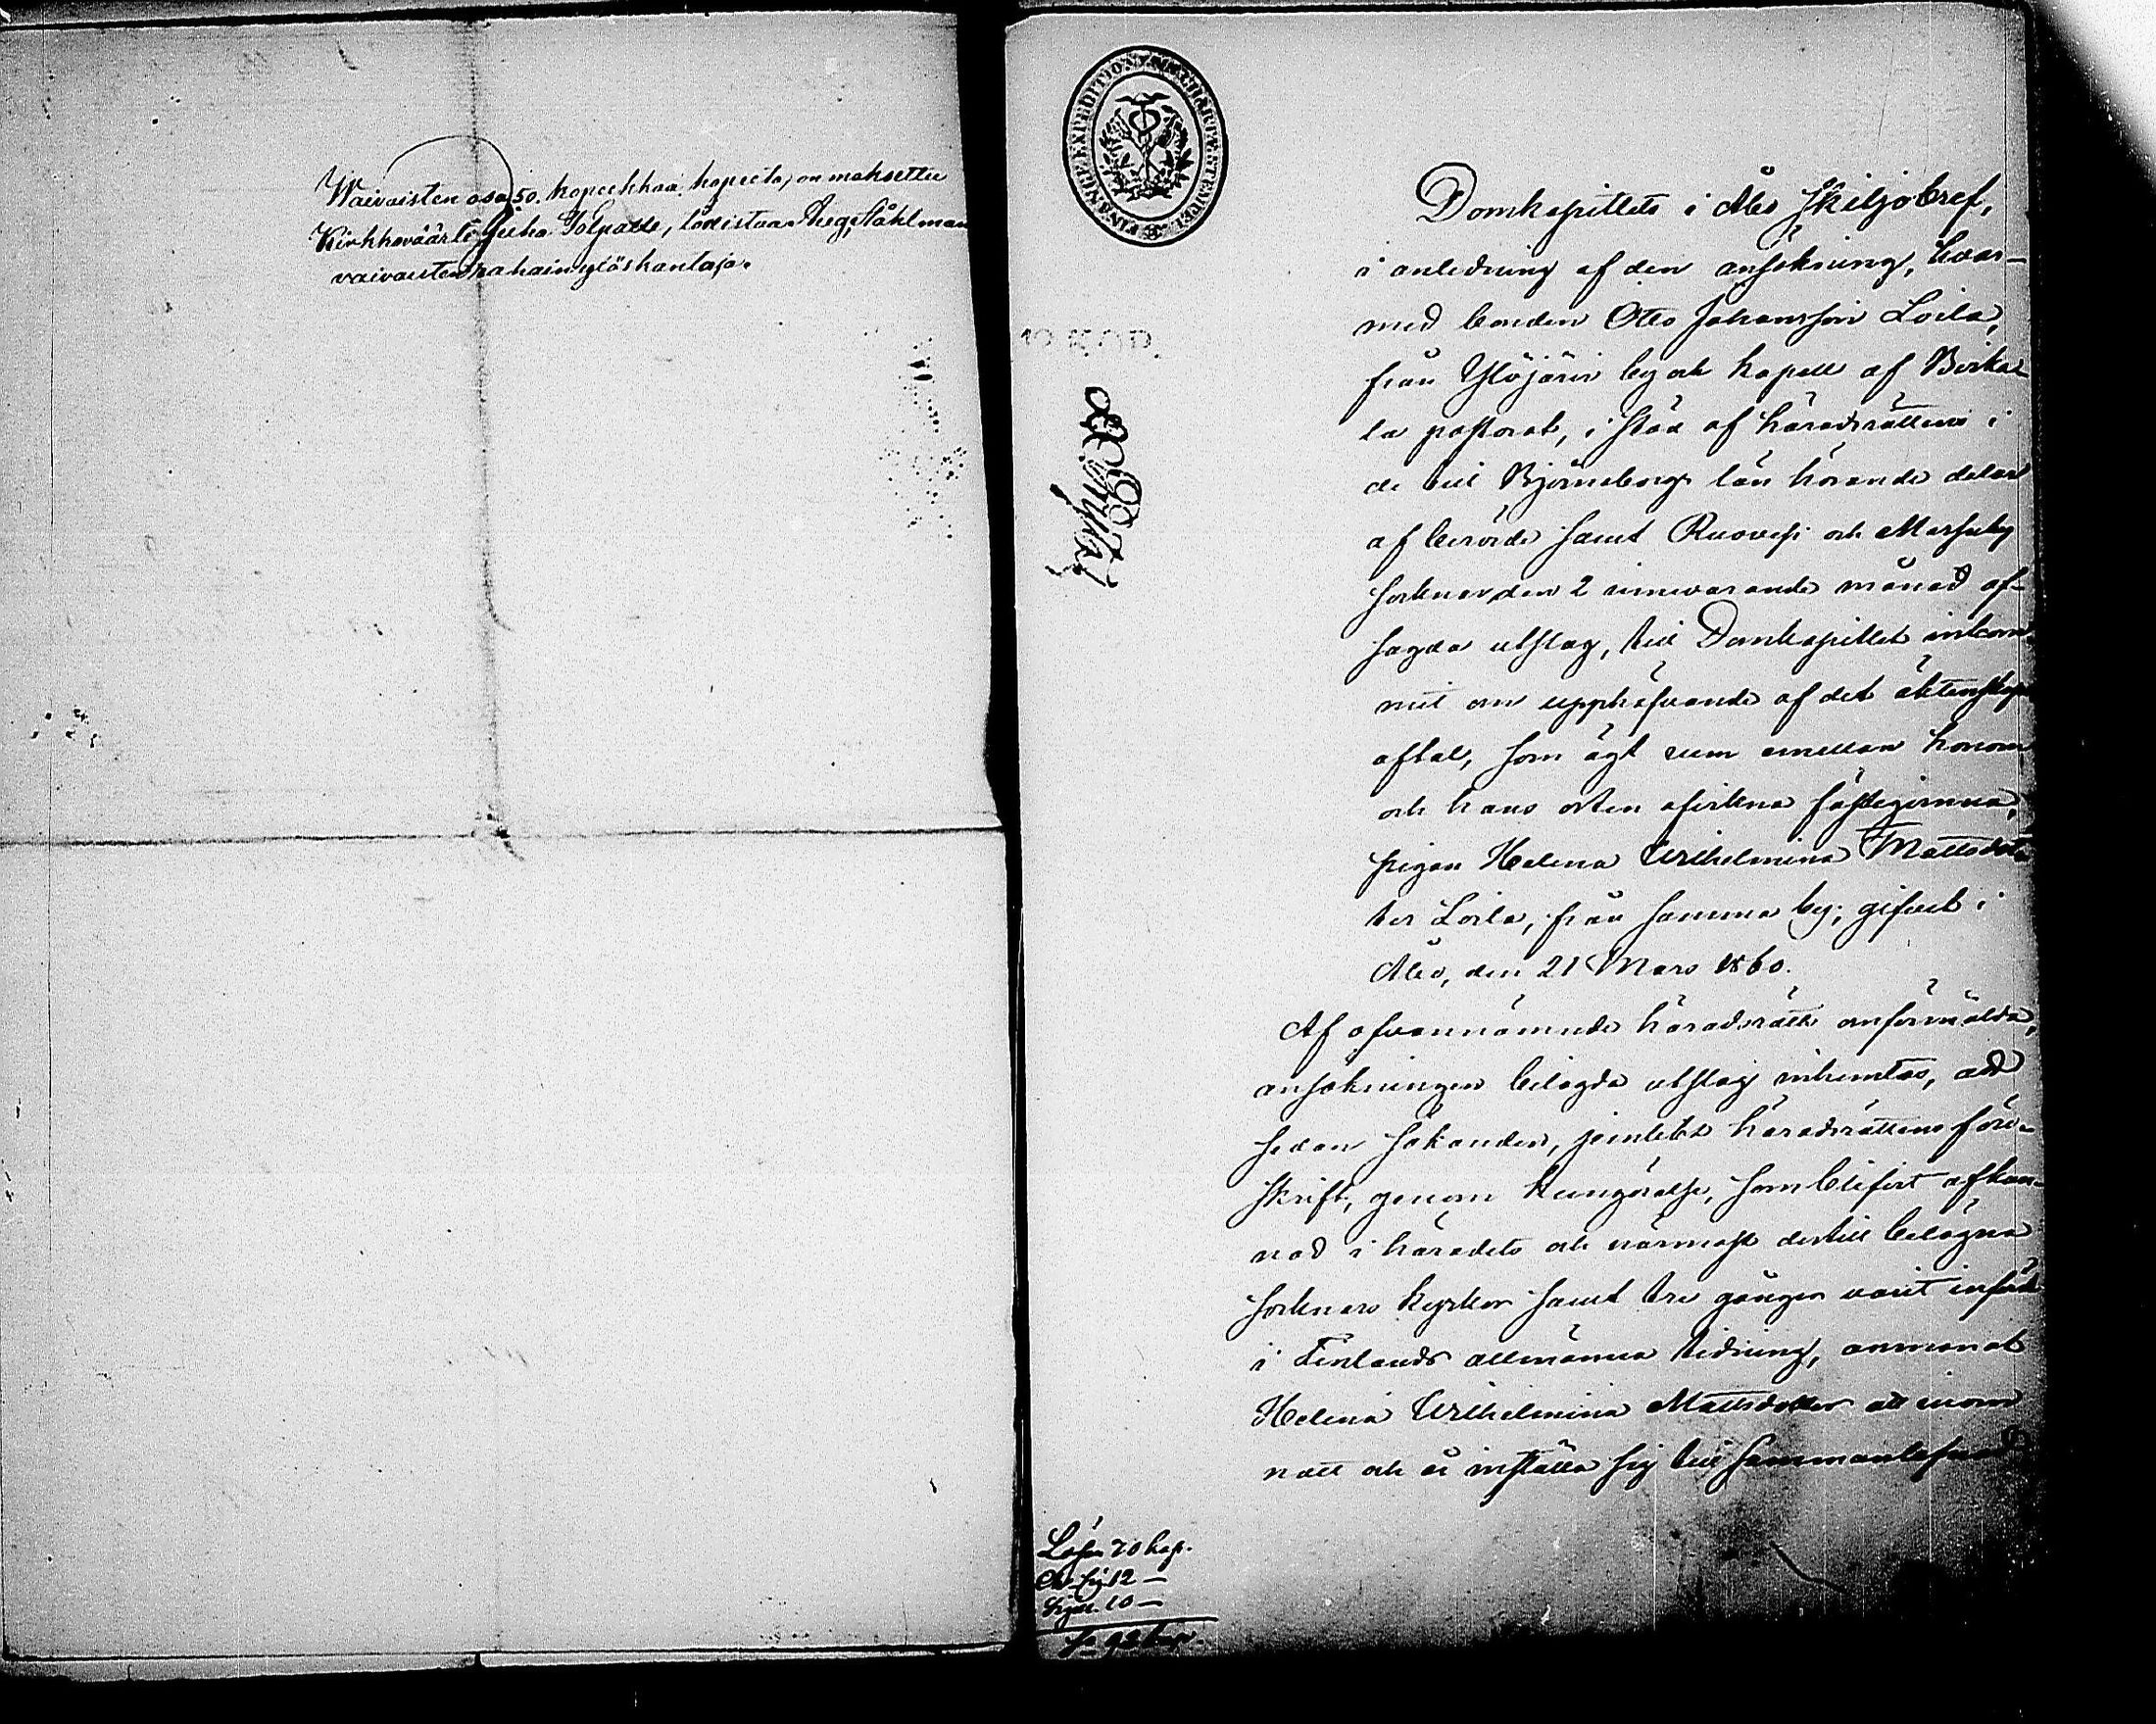 Waivaisten osa, 50. kopeekkaa hopeeta, on maksettu
Kirkkoväärti Juha Solpalle, todistaa Aug. Ståhlman
vaivaisten rahain ylöskantaja.
FINANCE EXPEDITION
Domkapitlets i Åbo Skiljobref,
i anledning af den ansökning, hvar-
med bonden Otto Johansson Loila,
från Ylöjärvi by och kapell af Birka-
la pastorat, i stöd af häradsrättens i
de till Björneborgs län hörande delar
af berörde samt Ruovesi och Messuby
socknar den 2 innevarande månad af-
sagda utslag, till Domkapitlet inkom-
mit om upphäfvande af det äktenskaps
aftal, som ägt rum emellan honom
och hans orten afvikna fästeqvinna,
pigan Helena Wilhelmina Mattsdot-
ter Loila, från samma by; gifvet i
Åbo, den 21 Mars 1860.
Af ofvannämnde häradsrätts omförmälda,
ansökningen bilagda utslag inhemtas, att
sedan sökanden, jemlikt häradsrättens före-
skrift, genom kungörelse, som blifvit afkun-
nad i häradets och närmast dertill belägna
socknars kyrkor samt tre gånger varit införd
i Finlands allmänna tidning, anmanat
Helena Wilhelmina Mattsdotter att inom
natt och år inställa sig till sammanlefnad
Lösen 70 kop.
12 —
10 —
S:a 92 kop.